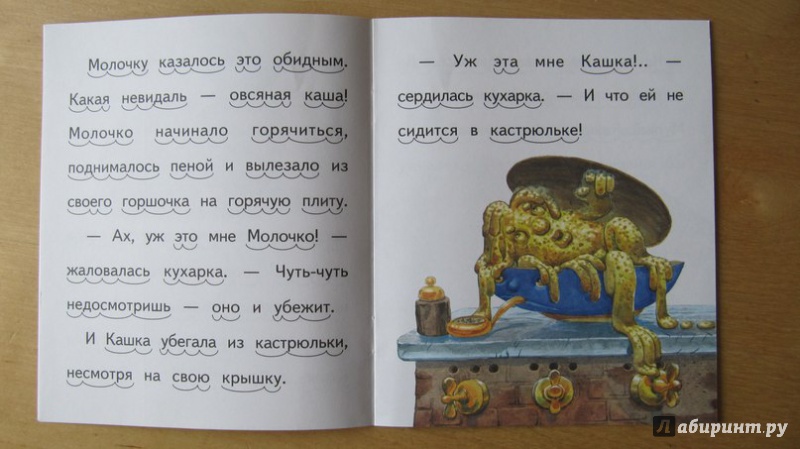 Молочку казалось это обидным.
Какая невидаль — овсяная каша!
Молочко начинало горячиться,
поднималось пеной и вылезало из
своего горшочка на горячую плиту.
— Ах, уж это мне Молочко! —
жаловалась кухарка. — Чуть-чуть
недосмотришь — оно и убежит.
И Кашка убегала из кастрюльки,
несмотря на свою крышку.
— Уж эта мне Кашка!.. —
сердилась кухарка. — И что ей не
сидится в кастрюльке!
Лабиринт.ру